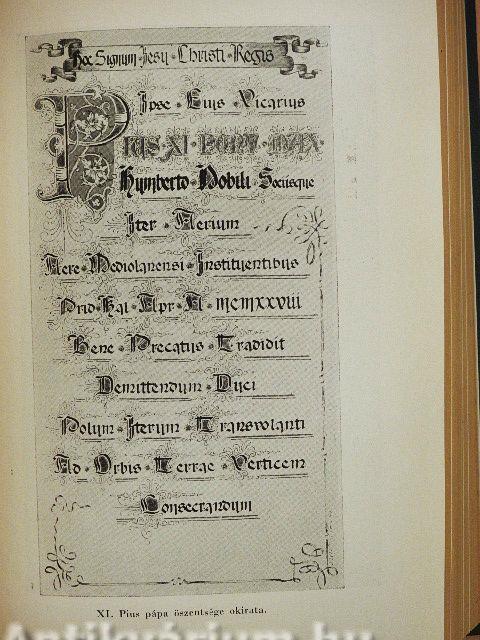 Hoc Signum Jesu Christi Regis
Ipse Eius Vicarius
PIUS XI PONT MAX
Humberto Nobili Sociisque
Iter Aerium
Aere Mediolanensi Instituentibus
Prid Kal Apr A MCMXXVIII
Bene Precatus Tradidit
Demittendum Duci
Polum Iterum Transvolanti
Ad Orbis Terrae Verticem
Consecrandum
XI. Pius pápa őszentsége okirata.
Antikvárium.hu